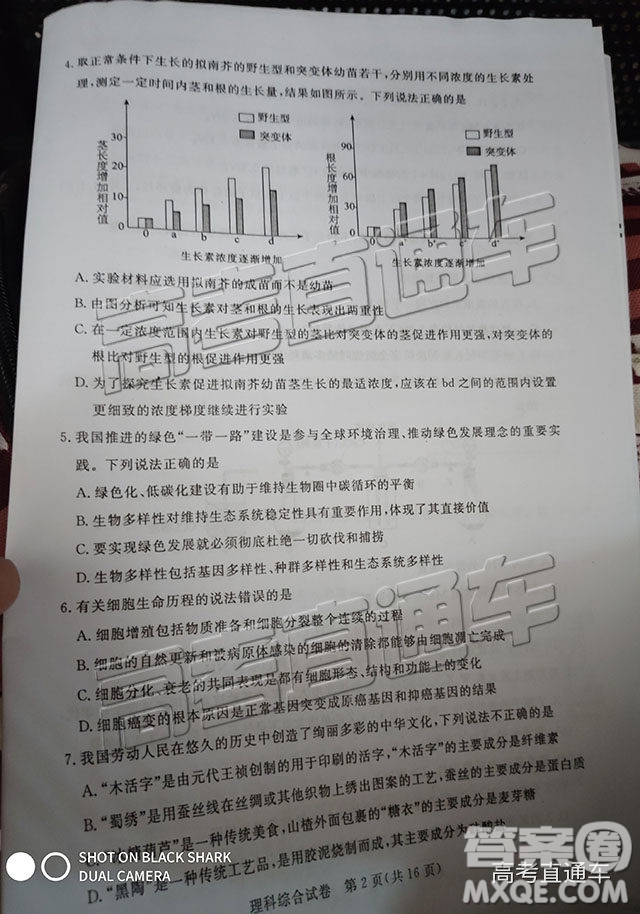 4. 取正常条件下生长的拟南芥的野生型和突变体幼苗若干，分别用不同浓度的生长素处
理，测定一定时间内茎和根的生长量，结果如图所示。下列说法正确的是
茎长度增加相对值
30
20
10
0
野生型
突变体
0 a b c d
生长素浓度逐渐增加
根长度增加相对值
90
30
0
野生型
突变体
0 a' b' c' d'
生长素浓度逐渐增加
A. 实验材料应选用拟南芥的成苗而不是幼苗
B. 由图分析可知生长素对茎和根的生长表现出两重性
C. 在一定浓度范围内生长素对野生型的茎比对突变体的茎促进作用更强，对突变体的
根比对野生型的根促进作用更强
D. 为了探究生长素促进拟南芥幼苗茎生长的最适浓度，应该在 bd 之间的范围内设置
更细致的浓度梯度继续进行实验
5. 我国推进的绿色“一带一路”建设是参与全球环境治理、推动绿色发展理念的重要实
践。下列说法正确的是
A. 绿色化、低碳化建设有助于维持生物圈中碳循环的平衡
B. 生物多样性对维持生态系统稳定性具有重要作用，体现了其直接价值
C. 要实现绿色发展就必须彻底杜绝一切砍伐和捕捞
D. 生物多样性包括基因多样性、种群多样性和生态系统多样性
6. 有关细胞生命历程的说法错误的是
A. 细胞增殖包括物质准备和细胞分裂整个连续的过程
B. 细胞的自然更新和被病原体感染的细胞的清除都能够由细胞凋亡完成
C. 细胞分化、衰老的共同表现是都有细胞形态、结构和功能上的变化
D. 细胞癌变的根本原因是正常基因突变成原癌基因和抑癌基因的结果
7. 我国劳动人民在悠久的历史中创造了绚丽多彩的中华文化，下列说法不正确的是
A. “木活字”是由元代王祯创制的用于印刷的活字，“木活字”的主要成分是纤维素
B. “蜀绣”是用蚕丝线在丝绸或其他织物上绣出图案的工艺，蚕丝的主要成分是蛋白质
糖葫芦”是一种传统美食，山楂外面包裹的“糖衣”的主要成分是麦芽糖
D. “黑陶”是一种传统工艺品，是用胶泥烧制而成，其主要成分为硅酸盐
理科综合试卷 第2页(共16页)
高考直通车
高考直通车
SHOT ON BLACK SHARK
DUAL CAMERA
答案圈
高考直通车
MXQE.COM